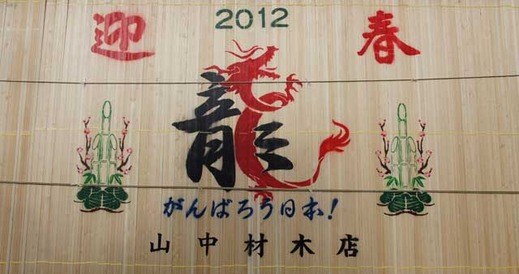 2012
迎春
龍
がんばろう日本!
山中材木店